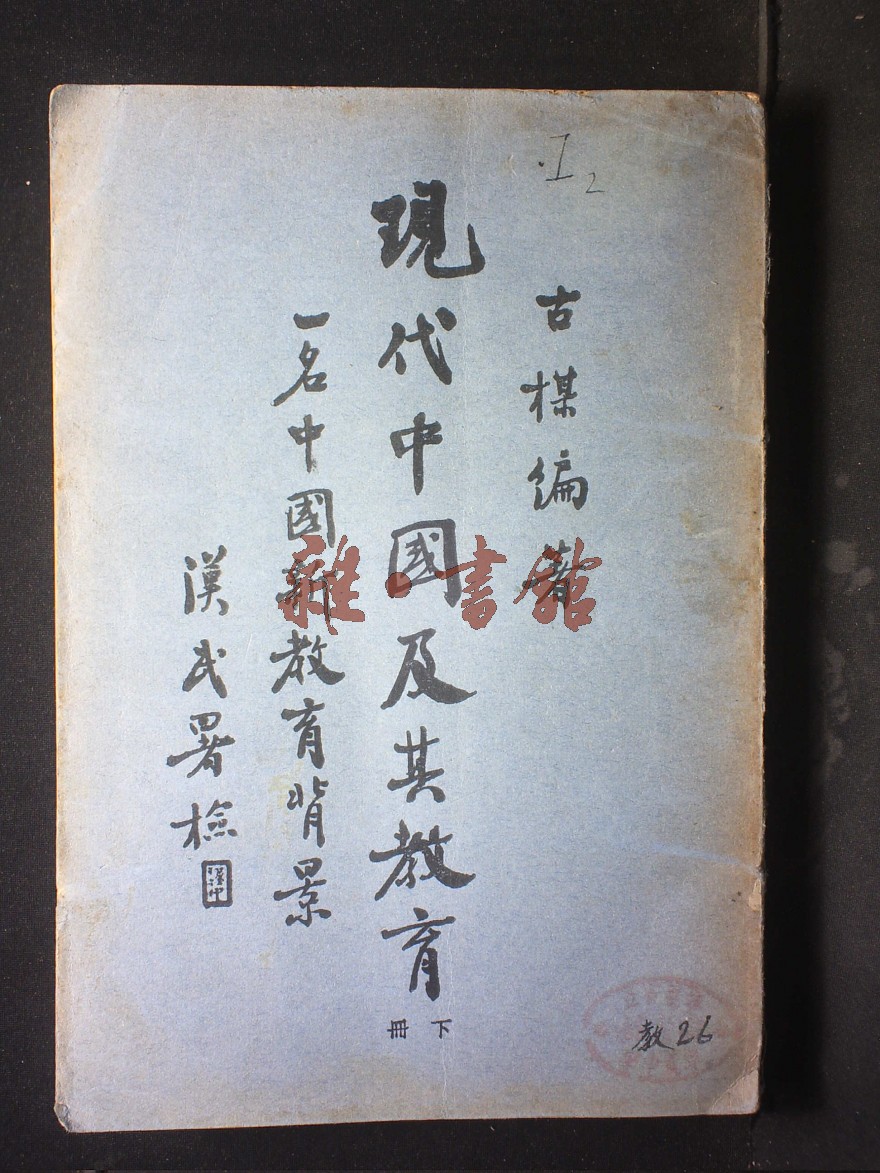 I 2
古楳編著
現代中國及其教育
下冊
一名中國新教育背景
漢民署檢
雜書館
教26